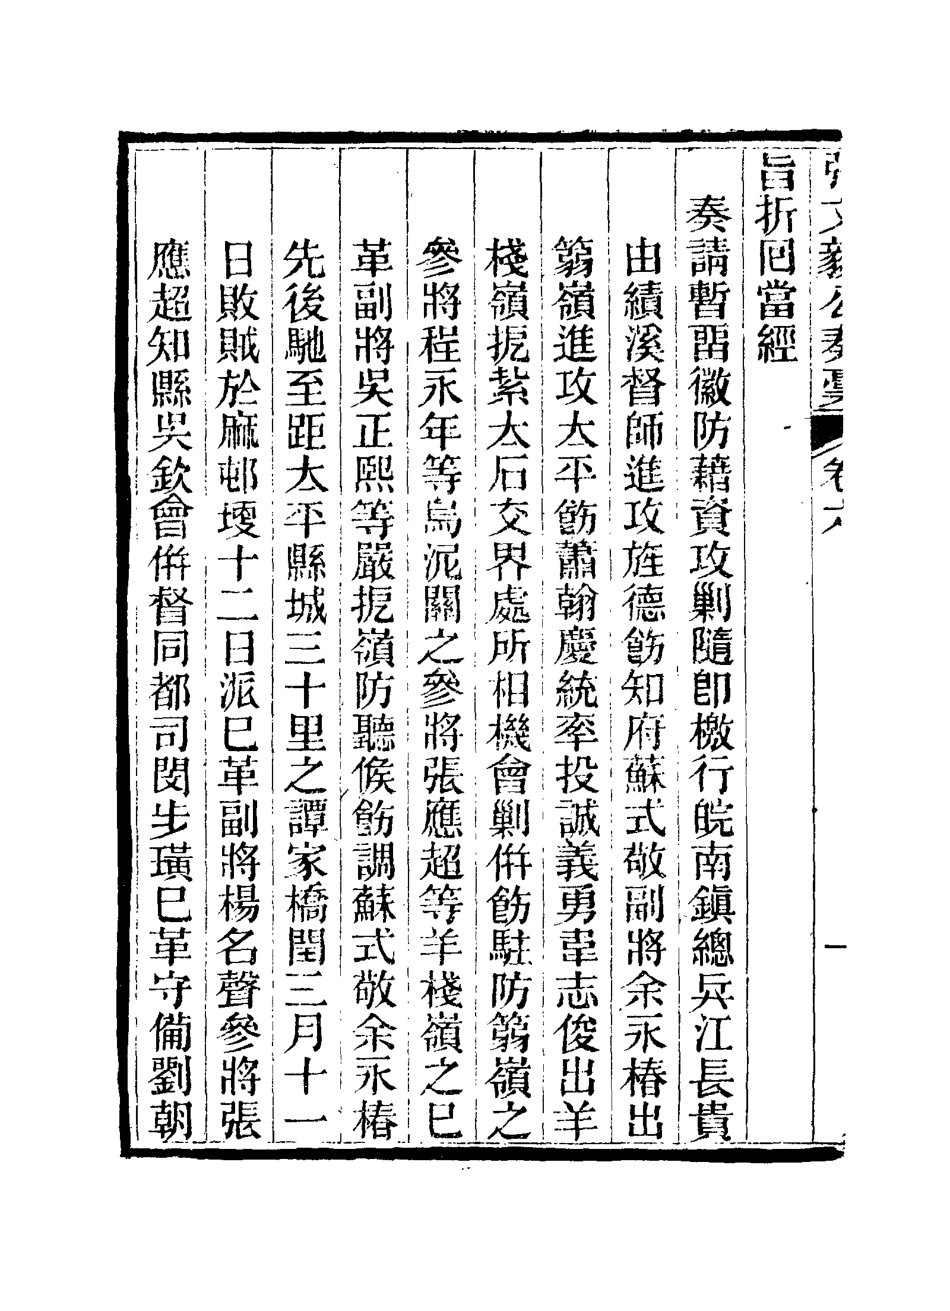 張文毅公奏稾 卷六 一
旨折回當經
奏請暫畱徽防藉資攻剿隨卽檄行皖南鎮總兵江長貴
由績溪督師進攻旌德飭知府蘇式敬副將余永椿出
箬嶺進攻太平飭蕭翰慶統率投誠義勇韋志俊出羊
棧嶺扼紮太石交界處所相機會剿倂飭駐防箬嶺之
參將程永年等烏泥關之參將張應超等羊棧嶺之巳
革副將吳正熙等嚴扼嶺防聽候飭調蘇式敬余永椿
先後馳至距太平縣城三十里之譚家橋閏三月十一
日敗賊於麻邨壝十二日派巳革副將楊名聲參將張
應超知縣吳欽曾倂督同都司閔步璜巳革守備劉朝